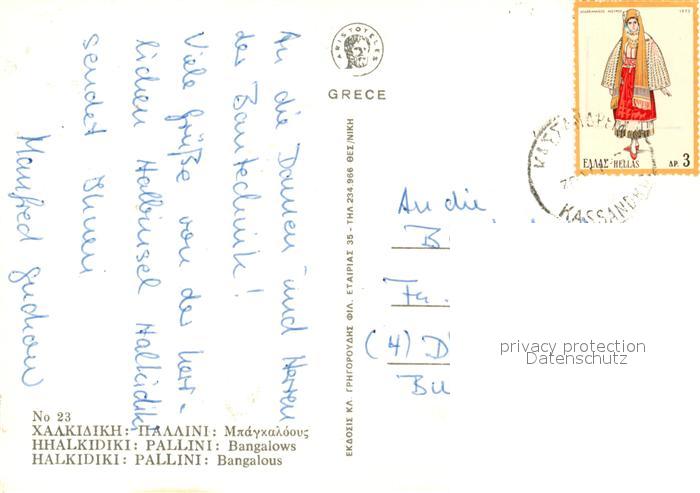 An die Damen und Herren
der Bautechnik!
Viele Grüße von der herr-
lichen Halbinsel Halkidiki
sendet Ihnen
Manfred
No 23
ΧΑΛΚΙΔΙΚΗ: ΠΑΛΛΙΝΙ: Μπάγκαλόους
HHALKIDIKI: PALLINI: Bangalows
HALKIDIKI: PALLINI: Bangalous
ARISTOTELES
GREECE
ΕΚΔΟΣΙΣ ΚΛ. ΓΡΗΓΟΡΟΥΔΗΣ ΦΙΛ. ΕΤΑΙΡΙΑΣ 35 - ΤΗΛ 234.966 ΘΕΣ/ΝΙΚΗ
1972
ΕΛΛΑΣ-HELLAS ΔΡ. 3
KASSANDRA
An die
B
Fa.
(4) D
privacy protection
Datenschutz